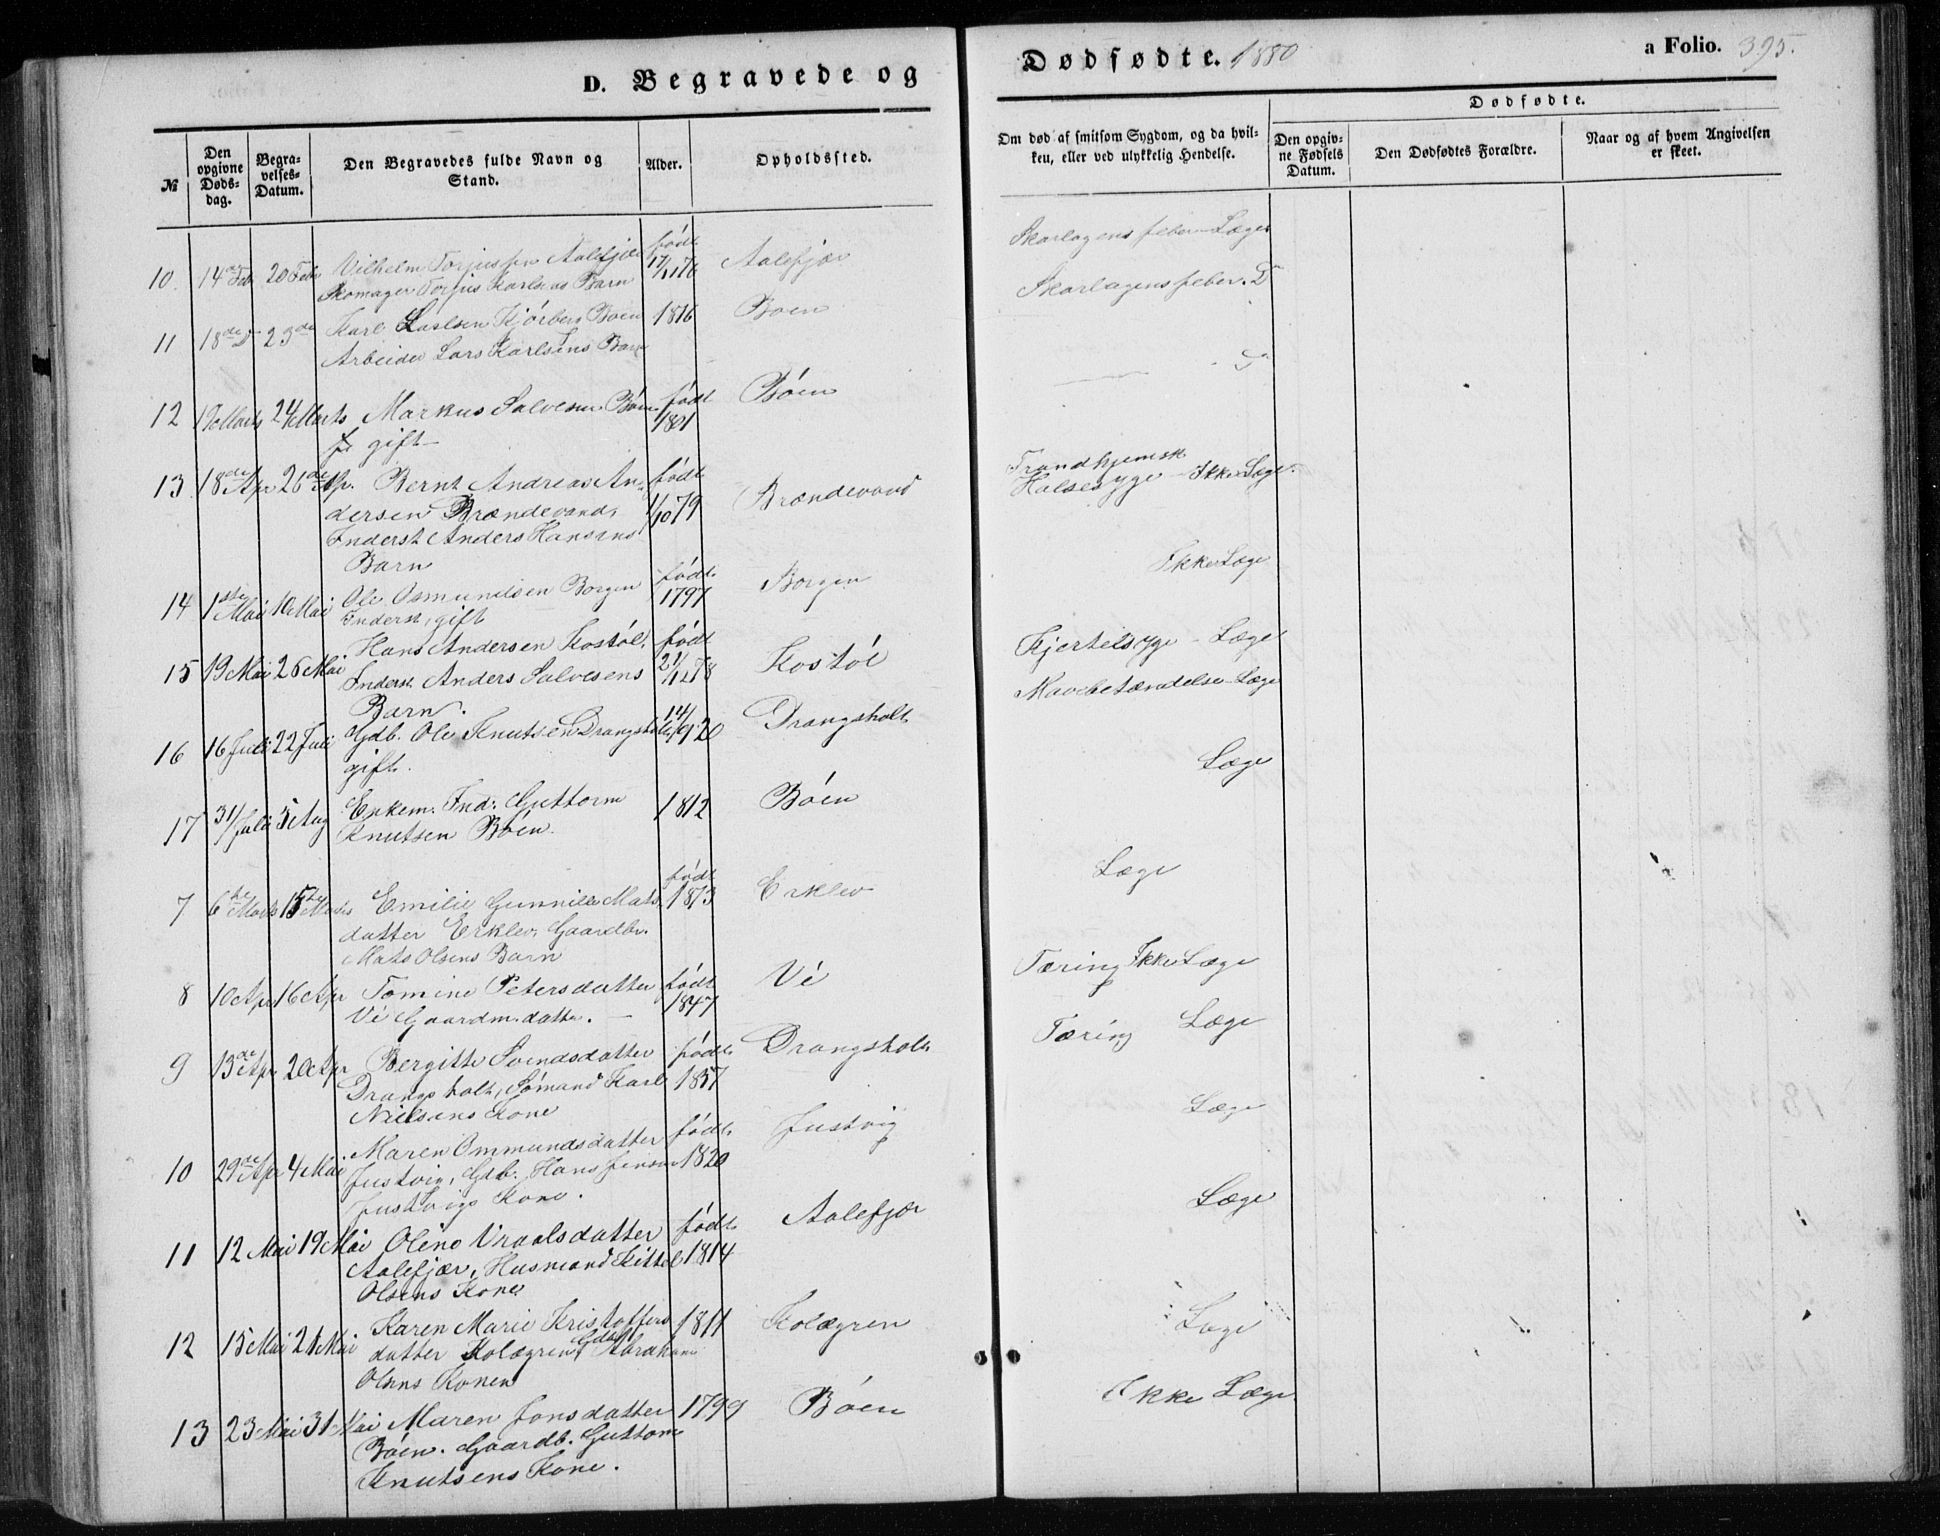 D. Begravede og
Dødfødte. 1880
a Folio. 395.
№
Den opgivne Døds-dag.
Begra-velses-Datum.
Den Begravedes fulde Navn og Stand.
Alder.
Opholdssted.
Om død af smitsom Sygdom, og da hvil-
ken, eller ved ulykkelig Hendelse.
Dødfødte.
Den opgiv-ne Fødsels Datum.
Den Dødfødtes Forældre.
Naar og af hvem Angivelsen er skeet.
10. 14de Feb 20 Feb Vilhelm Torjussen Aalefjær født 17/1 76 Aalefjær Skarlagensfeber - Læge
Skomager Torjus Karlsens Barn
11 18de D 23de Karl Larsen Kjørberg Boen 1876 Boen Skarlagensfeber. D
Arbeider Lars Karlsens Barn
12 19 Marts 24 Marts Markus Salvesen Bøen født 1801 Bøen
gift
13 18de Apr 26de Ap. Bernt Andreas An- født 1/10 79 Brændevand Trondhjemsk
dersen Brændevand, Halsesyge - Ikke Læge.
Inderst Anders Hansens
Barn
14 1ste Mai 10 Mai Ole Osmundsen Borgen født 1797 Borgen Ikke Læge
Inderst, gift
15 19 Mai 26 Mai Hans Andersen Kostøl, født 21/12 78 Kostøl Kjertelsyge - Læge
Inderst Anders Salvesens
Barn.
16 16 Juli 22 Juli Gdb. Ole Knutsen Drangsholt 14/9 20 Drangsholt Mavebetændelse - Læge
gift.
17 31/Juli 5 Aug Enkem. Ind: Guttorm 1812 Bøen Læge
Knutsen Bøen.
7 6te Marts 15de Marts Emilie Gunnille Mats- født 1873 Erklev Læge
datter Erklev, Gaardbr.
Mats Olsens Barn
8 10 Apr 16 Apr Tomine Petersdatter født 1847 Vé Tæring Ikke Læge
Vé Gaardm. datter. -
9 13de Apr 20 Apr Bergitte Svendsdatter født 1857 Drangsholt Tæring Læge
Drangsholt, Sømand Karl
Nielsens Kone
10 29de Apr 4 Mai Maren Ommundsdatter født 1820 Justvig Læge
Justvig, Gdb. Hans Jensen
Justvigs Kone.
11 12 Mai 19 Mai Oline Vraalsdatter født 1814 Aalefjær Læge
Aalefjær, Husmand Kittel
Olsens Kone
12 15 Mai 21 Mai Karen Marie Kristoffers 1811 Kolægren Læge
datter Kolægren, Gdb Abraham
Olsens Konen
13 23 Mai 31 Mai Maren Jonsdatter 1799 Bøen Ikke Læge
Bøen. Gaardb. Guttorm
Knutsens Kone.